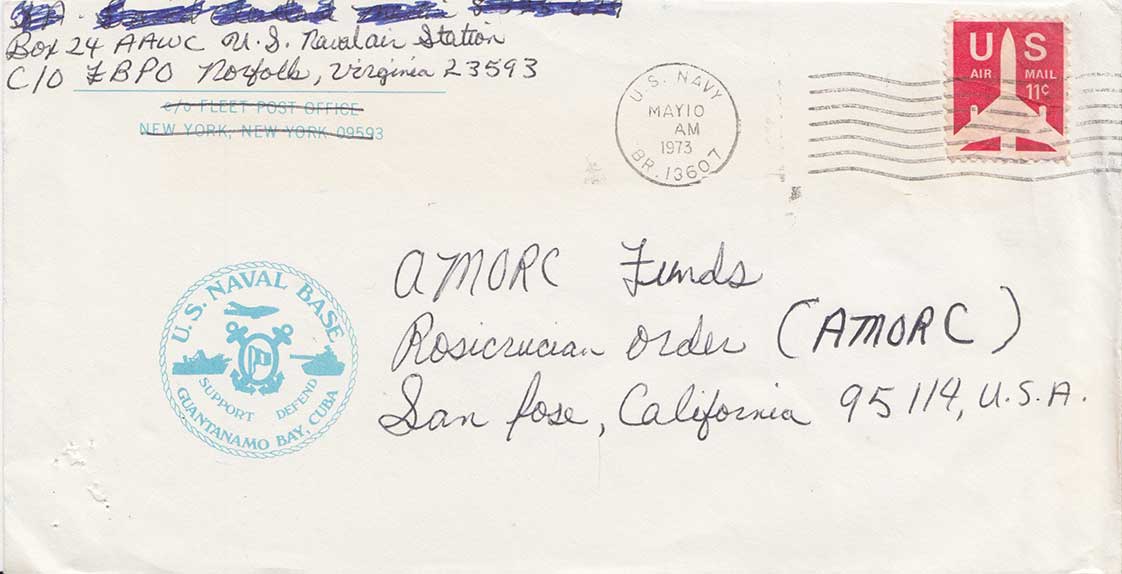 Box 24 AAWC U.S. Naval air Station
C/O FBPO Norfolk, Virginia 23593
c/o FLEET POST OFFICE
NEW YORK, NEW YORK 09593
U.S. NAVY
MAY 10
AM
1973
BR. 13607
US
AIR MAIL
11¢
AMORC Funds
Rosicrucian Order (AMORC)
San Jose, California 95114, U.S.A.
U.S. NAVAL BASE
SUPPORT DEFEND
GUANTANAMO BAY, CUBA